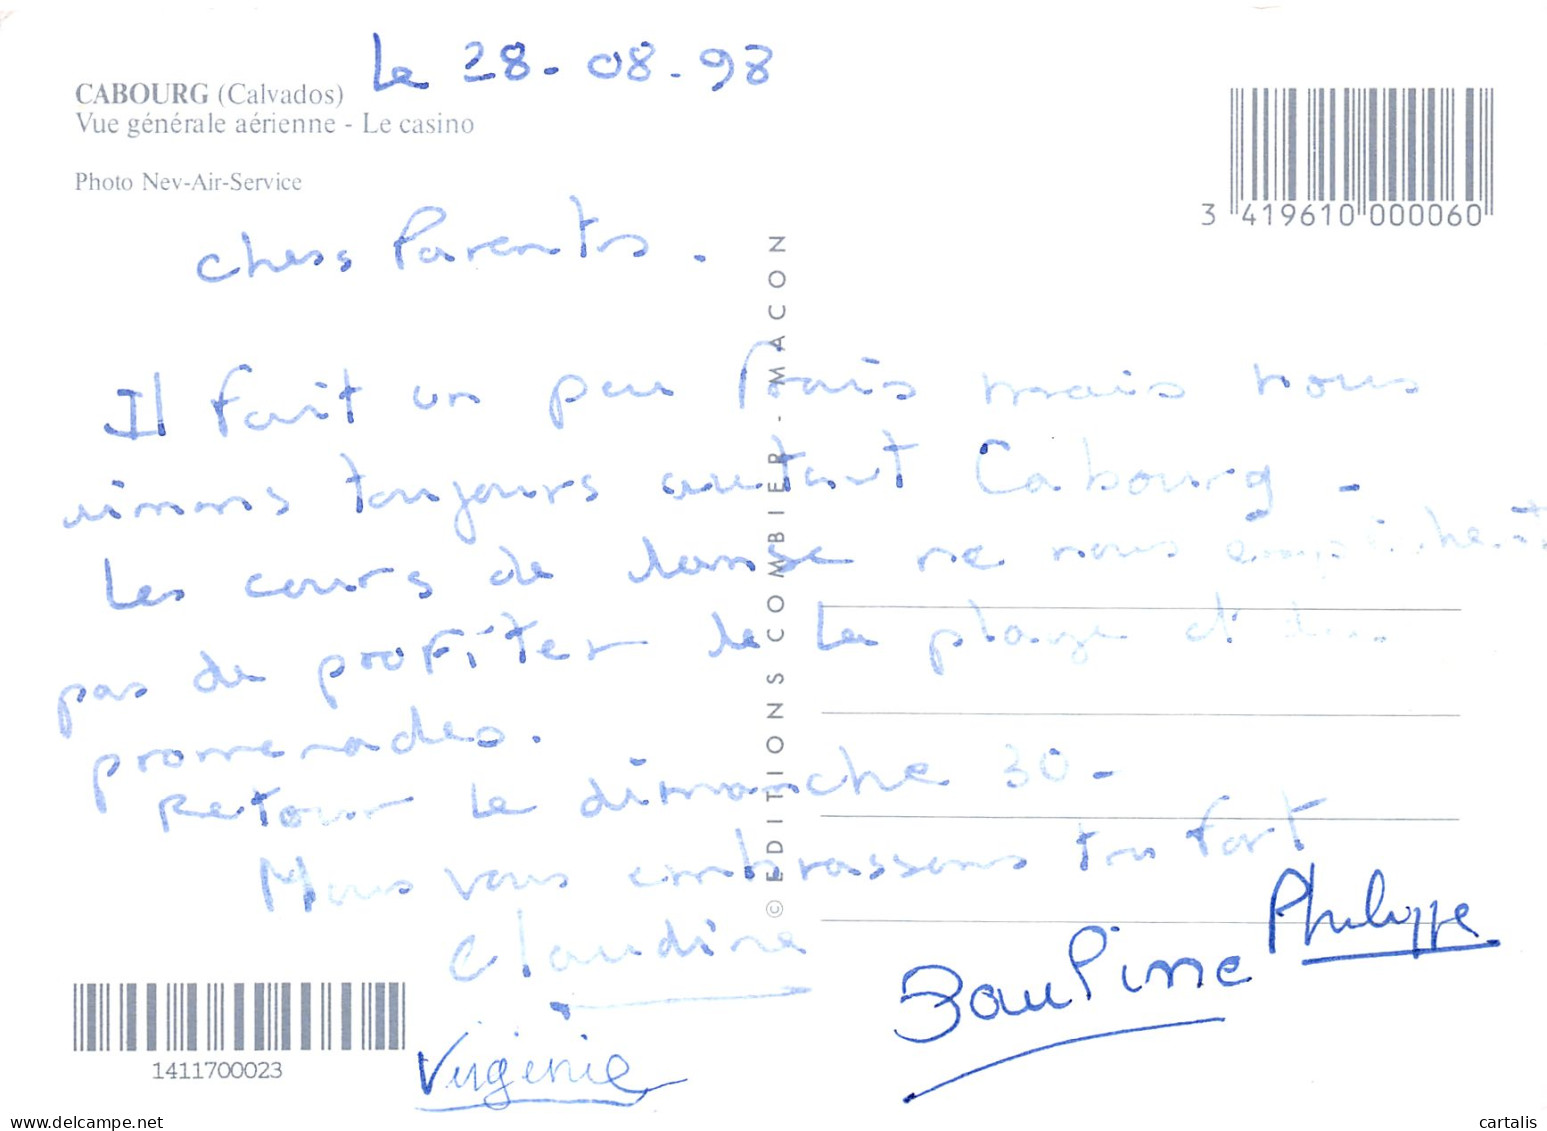 Le 28-08-98
CABOURG (Calvados)
Vue générale aérienne - Le casino
Photo Nev-Air-Service
3 419610 000060
chers Parents.
Il fait un peu frais mais nous
aimons toujours autant Cabourg -
Les cours de danse ne nous empêchent
pas de profiter de la plage et des
promenades.
Retour le dimanche 30 -
Nous vous embrassons très fort
Claudine
Philippe
Pauline
Virginie
© EDITIONS COMBIER - MACON
1411700023
www.delcampe.net
cartalis